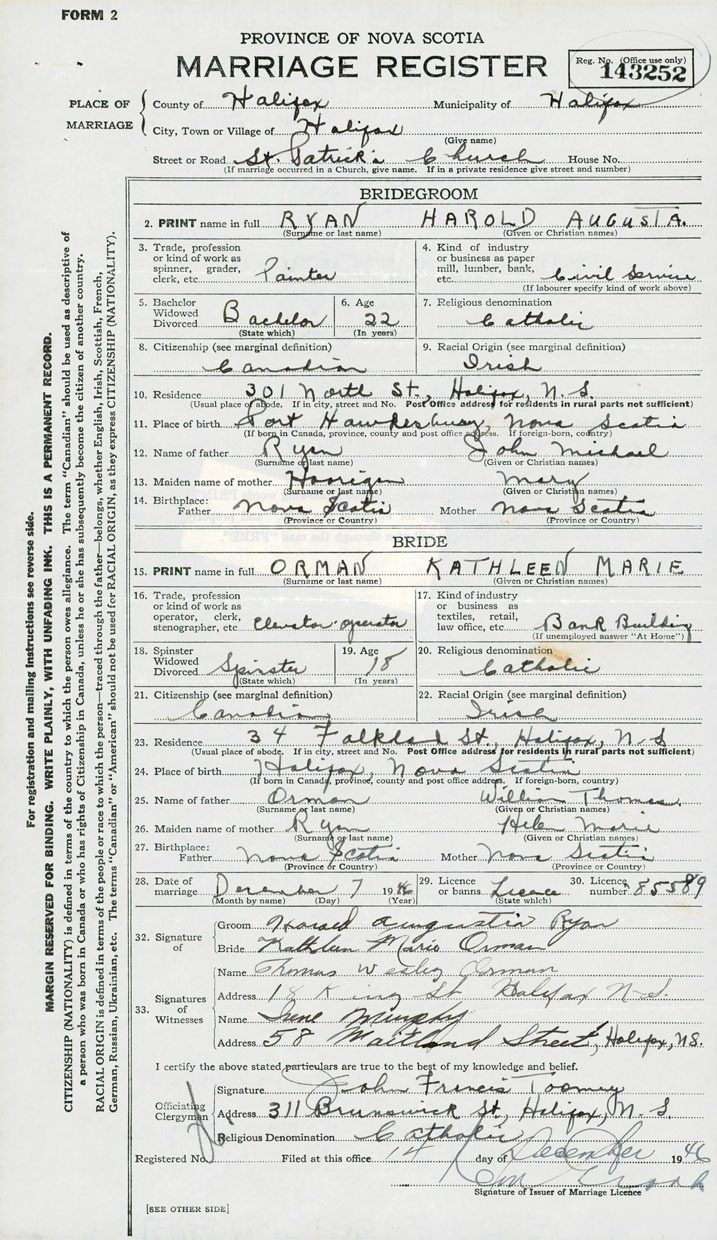 FORM 2
PROVINCE OF NOVA SCOTIA
MARRIAGE REGISTER
Reg. No. (Office use only)
143252
PLACE OF MARRIAGE
County of Halifax Municipality of Halifax
City, Town or Village of Halifax
(Give name)
Street or Road St. Patrick's Church House No.
(If marriage occurred in a Church, give name. If in a private residence give street and number)
BRIDEGROOM
2. PRINT name in full RYAN HAROLD AUGUSTA.
(Surname or last name) (Given or Christian names)
3. Trade, profession or kind of work as spinner, grader, clerk, etc. Painter
4. Kind of industry or business as paper mill, lumber, bank, etc. Civil Service
(If labourer specify kind of work above)
5. Bachelor Widowed Divorced Bachelor
(State which)
6. Age 22
(In years)
7. Religious denomination
Catholic
8. Citizenship (see marginal definition)
Canadian
9. Racial Origin (see marginal definition)
Irish
10. Residence 301 North St., Halifax, N.S.
(Usual place of abode. If in city, street and No. Post Office address for residents in rural parts not sufficient)
11. Place of birth Port Hawkesbury, Nova Scotia
(If born in Canada, province, county and post office address. If foreign-born, country)
12. Name of father Ryan John Michael
(Surname or last name) (Given or Christian names)
13. Maiden name of mother Mary
(Surname or last name) (Given or Christian names)
14. Birthplace: Father Nova Scotia Mother Nova Scotia
(Province or Country) (Province or Country)
BRIDE
15. PRINT name in full ORMAN KATHLEEN MARIE
(Surname or last name) (Given or Christian names)
16. Trade, profession or kind of work as operator, clerk, stenographer, etc. Elevator-operator
17. Kind of industry or business as textiles, retail, law office, etc. Bank Building
(If unemployed answer "At Home")
18. Spinster Widowed Divorced Spinster
(State which)
19. Age 18
(In years)
20. Religious denomination
Catholic
21. Citizenship (see marginal definition)
Canadian
22. Racial Origin (see marginal definition)
Irish
23. Residence 34 Falkland St., Halifax, N.S
(Usual place of abode. If in city, street and No. Post Office address for residents in rural parts not sufficient)
24. Place of birth Halifax, Nova Scotia
(If born in Canada, province, county and post office address. If foreign-born, country)
25. Name of father Orman William Thomas.
(Surname or last name) (Given or Christian names)
26. Maiden name of mother Ryan Helen Marie
(Surname or last name) (Given or Christian names)
27. Birthplace: Father Nova Scotia Mother Nova Scotia
(Province or Country) (Province or Country)
28. Date of marriage December 7 1946
(Month by name) (Day) (Year)
29. Licence or banns Licence
(State which)
30. Licence number 85589
32. Signature of
Groom Harold Augustin Ryan
Bride Kathleen Marie Orman
33. Signatures of Witnesses
Name Thomas Wesley Orman
Address 18 King St Halifax N.S.
Name June Murphy
Address 58 Maitland Street, Halifax, NS.
I certify the above stated particulars are true to the best of my knowledge and belief.
Officiating Clergyman
Signature John Francis Toomey
Address 311 Brunswick St, Halifax, N.S
Religious Denomination Catholic
Registered No. Filed at this office 14 day of December 1946
Signature of Issuer of Marriage Licence
[SEE OTHER SIDE]
For registration and mailing instructions see reverse side.
MARGIN RESERVED FOR BINDING. WRITE PLAINLY, WITH UNFADING INK. THIS IS A PERMANENT RECORD.
CITIZENSHIP (NATIONALITY) is defined in terms of the country to which the person owes allegiance. The term "Canadian" should be used as descriptive of
a person who was born in Canada or who has rights of Citizenship in Canada, unless he or she has subsequently become the citizen of another country.
RACIAL ORIGIN is defined in terms of the people or race to which the person—traced through the father—belongs, whether English, Irish, Scottish, French,
German, Russian, Ukrainian, etc. The terms "Canadian" or "American" should not be used for RACIAL ORIGIN, as they express CITIZENSHIP (NATIONALITY).